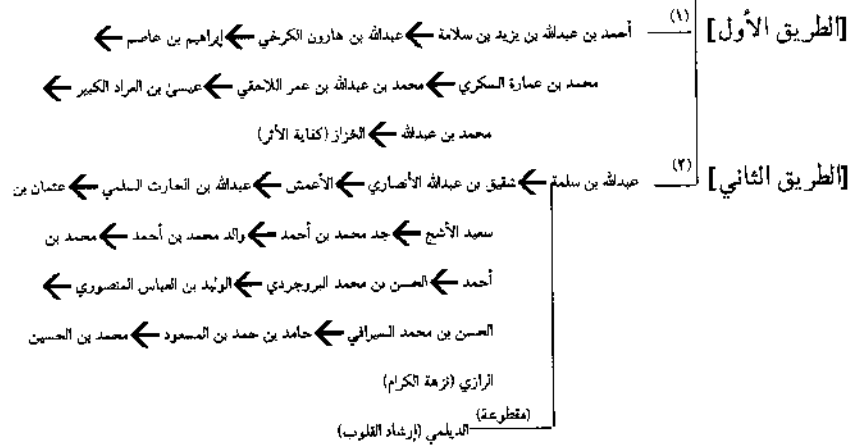 [الطريق الأول] (١) أحمد بن عبدالله بن يزيد بن سلامة ← عبدالله بن هارون الكرخي ← إبراهيم بن عاصم ←
محمد بن عمارة السكري ← محمد بن عبدالله بن عمر اللاحقي ← عيسى بن العراد الكبير ←
محمد بن عبدالله ← الخزاز (كفاية الأثر)
[الطريق الثاني] (٢) عبدالله بن سلمة ← شقيق بن عبدالله الأنصاري ← الأعمش ← عبدالله بن الحارث السلمي ← عثمان بن
سعيد الأشج ← جد محمد بن أحمد ← والد محمد بن أحمد ← محمد بن
أحمد ← الحسن بن محمد البروجردي ← الوليد بن العباس المنصوري ←
الحسن بن محمد السيرافي ← حامد بن حمد بن المسعود ← محمد بن الحسين
الرازي (نزهة الكرام)
(مقطوعة) الديلمي (إرشاد القلوب)